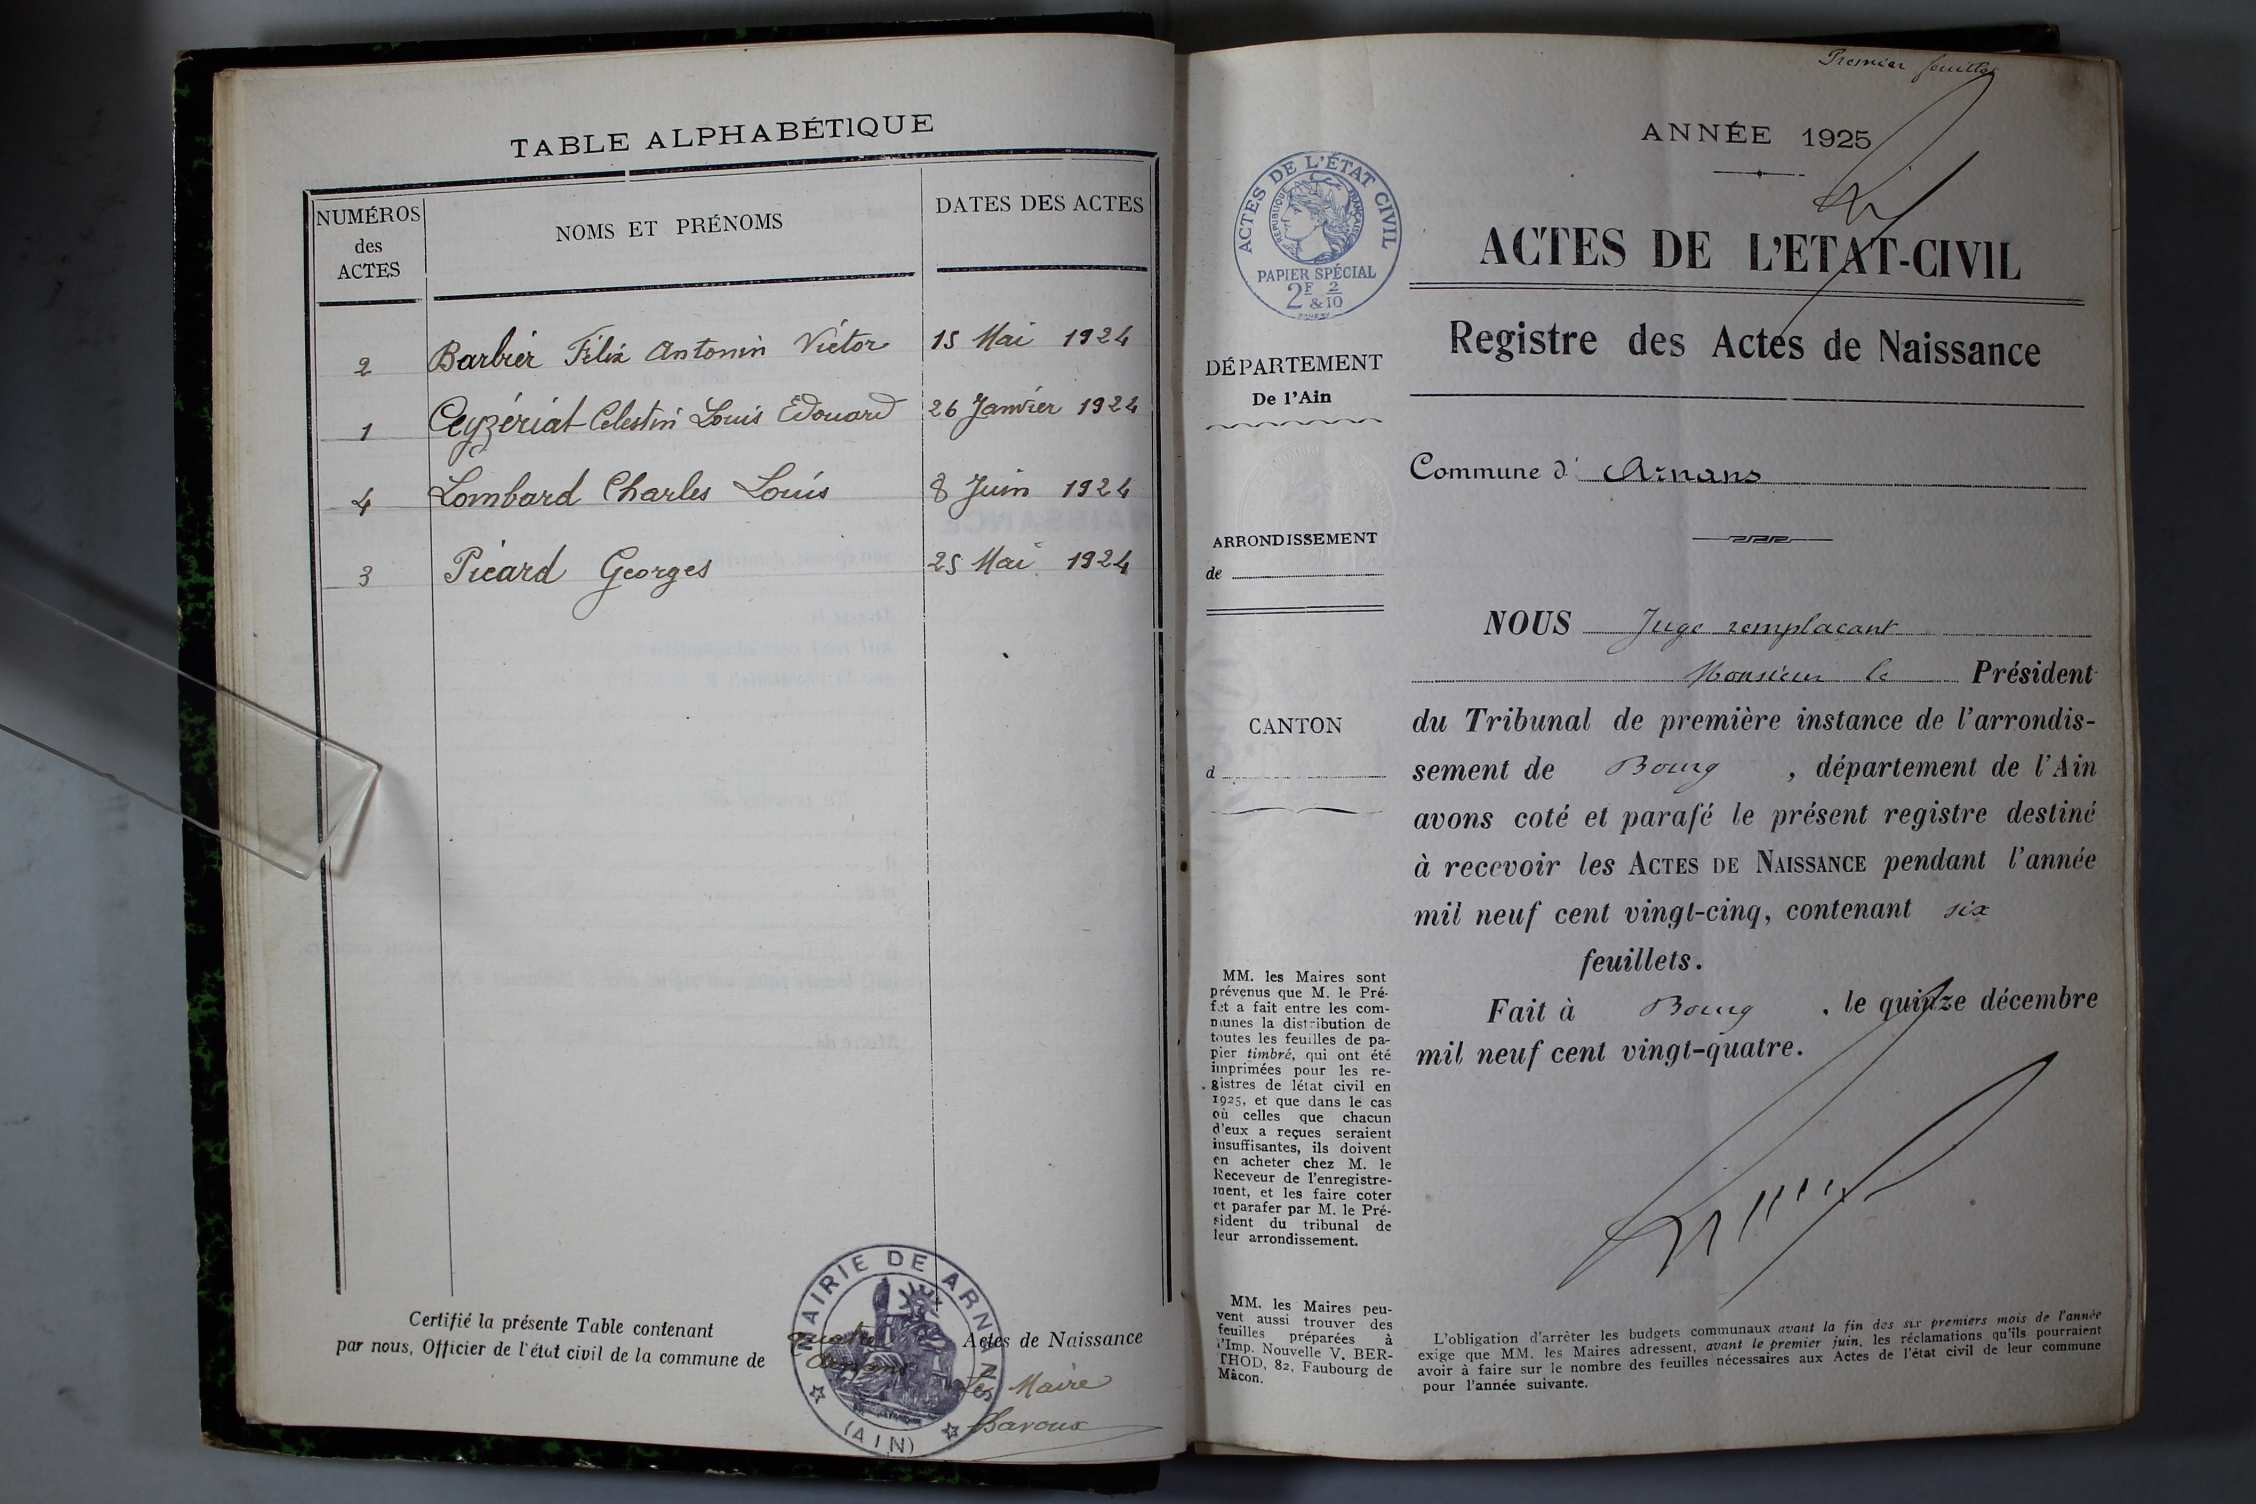 TABLE ALPHABÉTIQUE
NUMÉROS
des
ACTES
NOMS ET PRÉNOMS
DATES DES ACTES
2 Barbier Félix Antonin Victor 15 Mai 1924
1 Ceyzériat Célestin Louis Edouard 26 Janvier 1924
4 Lombard Charles Louis 8 Juin 1924
3 Picard Georges 25 Mai 1924
Certifié la présente Table contenant quatre Actes de Naissance
par nous, Officier de l'état civil de la commune de Arnans
Le Maire
MAIRIE DE ARNANS
(AIN)
Premier feuillet
ANNÉE 1925
ACTES DE L'ÉTAT CIVIL
RÉPUBLIQUE FRANÇAISE
PAPIER SPÉCIAL
2F & 2/10
ACTES DE L'ETAT-CIVIL
Registre des Actes de Naissance
DÉPARTEMENT
De l'Ain
Commune d' Arnans
ARRONDISSEMENT
de
CANTON
d
NOUS Juge remplaçant
Monsieur le Président
du Tribunal de première instance de l'arrondis-
sement de Bourg , département de l'Ain
avons coté et parafé le présent registre destiné
à recevoir les ACTES DE NAISSANCE pendant l'année
mil neuf cent vingt-cinq, contenant six
feuillets.
Fait à Bourg , le quinze décembre
mil neuf cent vingt-quatre.
MM. les Maires sont
prévenus que M. le Pré-
fet a fait entre les com-
munes la distribution de
toutes les feuilles de pa-
pier timbré, qui ont été
imprimées pour les re-
gistres de létat civil en
1925, et que dans le cas
où celles que chacun
d'eux a reçues seraient
insuffisantes, ils doivent
en acheter chez M. le
Receveur de l'enregistre-
ment, et les faire coter
et parafer par M. le Pré-
sident du tribunal de
leur arrondissement.
MM. les Maires peu-
vent aussi trouver des
feuilles préparées à
l'Imp. Nouvelle V. BER-
THOD, 82, Faubourg de
Mâcon.
L'obligation d'arrêter les budgets communaux avant la fin des six premiers mois de l'année
exige que MM. les Maires adressent, avant le premier juin, les réclamations qu'ils pourraient
avoir à faire sur le nombre des feuilles nécessaires aux Actes de l'état civil de leur commune
pour l'année suivante.